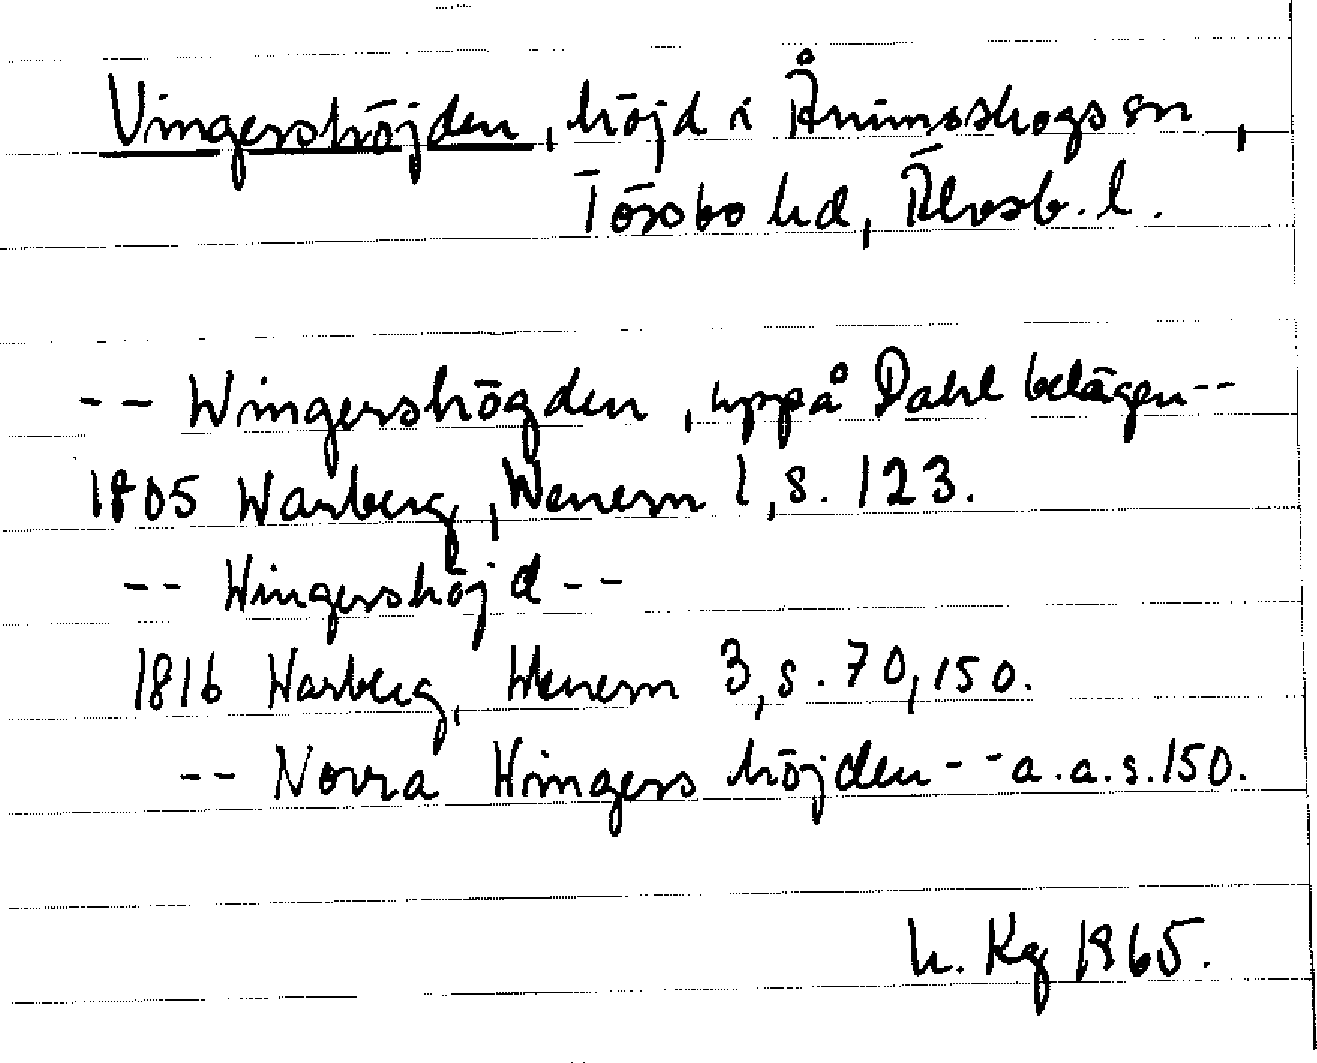 Vingershöjden, höjd i Ånimskogs sn,
Tössbo hd, Älvsb. l.
-- Wingershögden, uppå Dahl belägen--
1805 Warberg, Wenern 1, s. 123.
-- Wingershöjd --
1816 Warberg, Wenern 3, s. 70, 150.
-- Norra Wingers höjden -- a. a. s. 150.
h. Kg 1965.